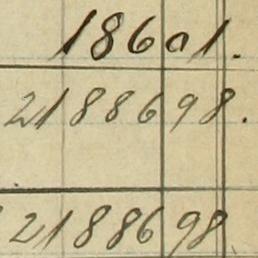 18601.
2188698.
2188698